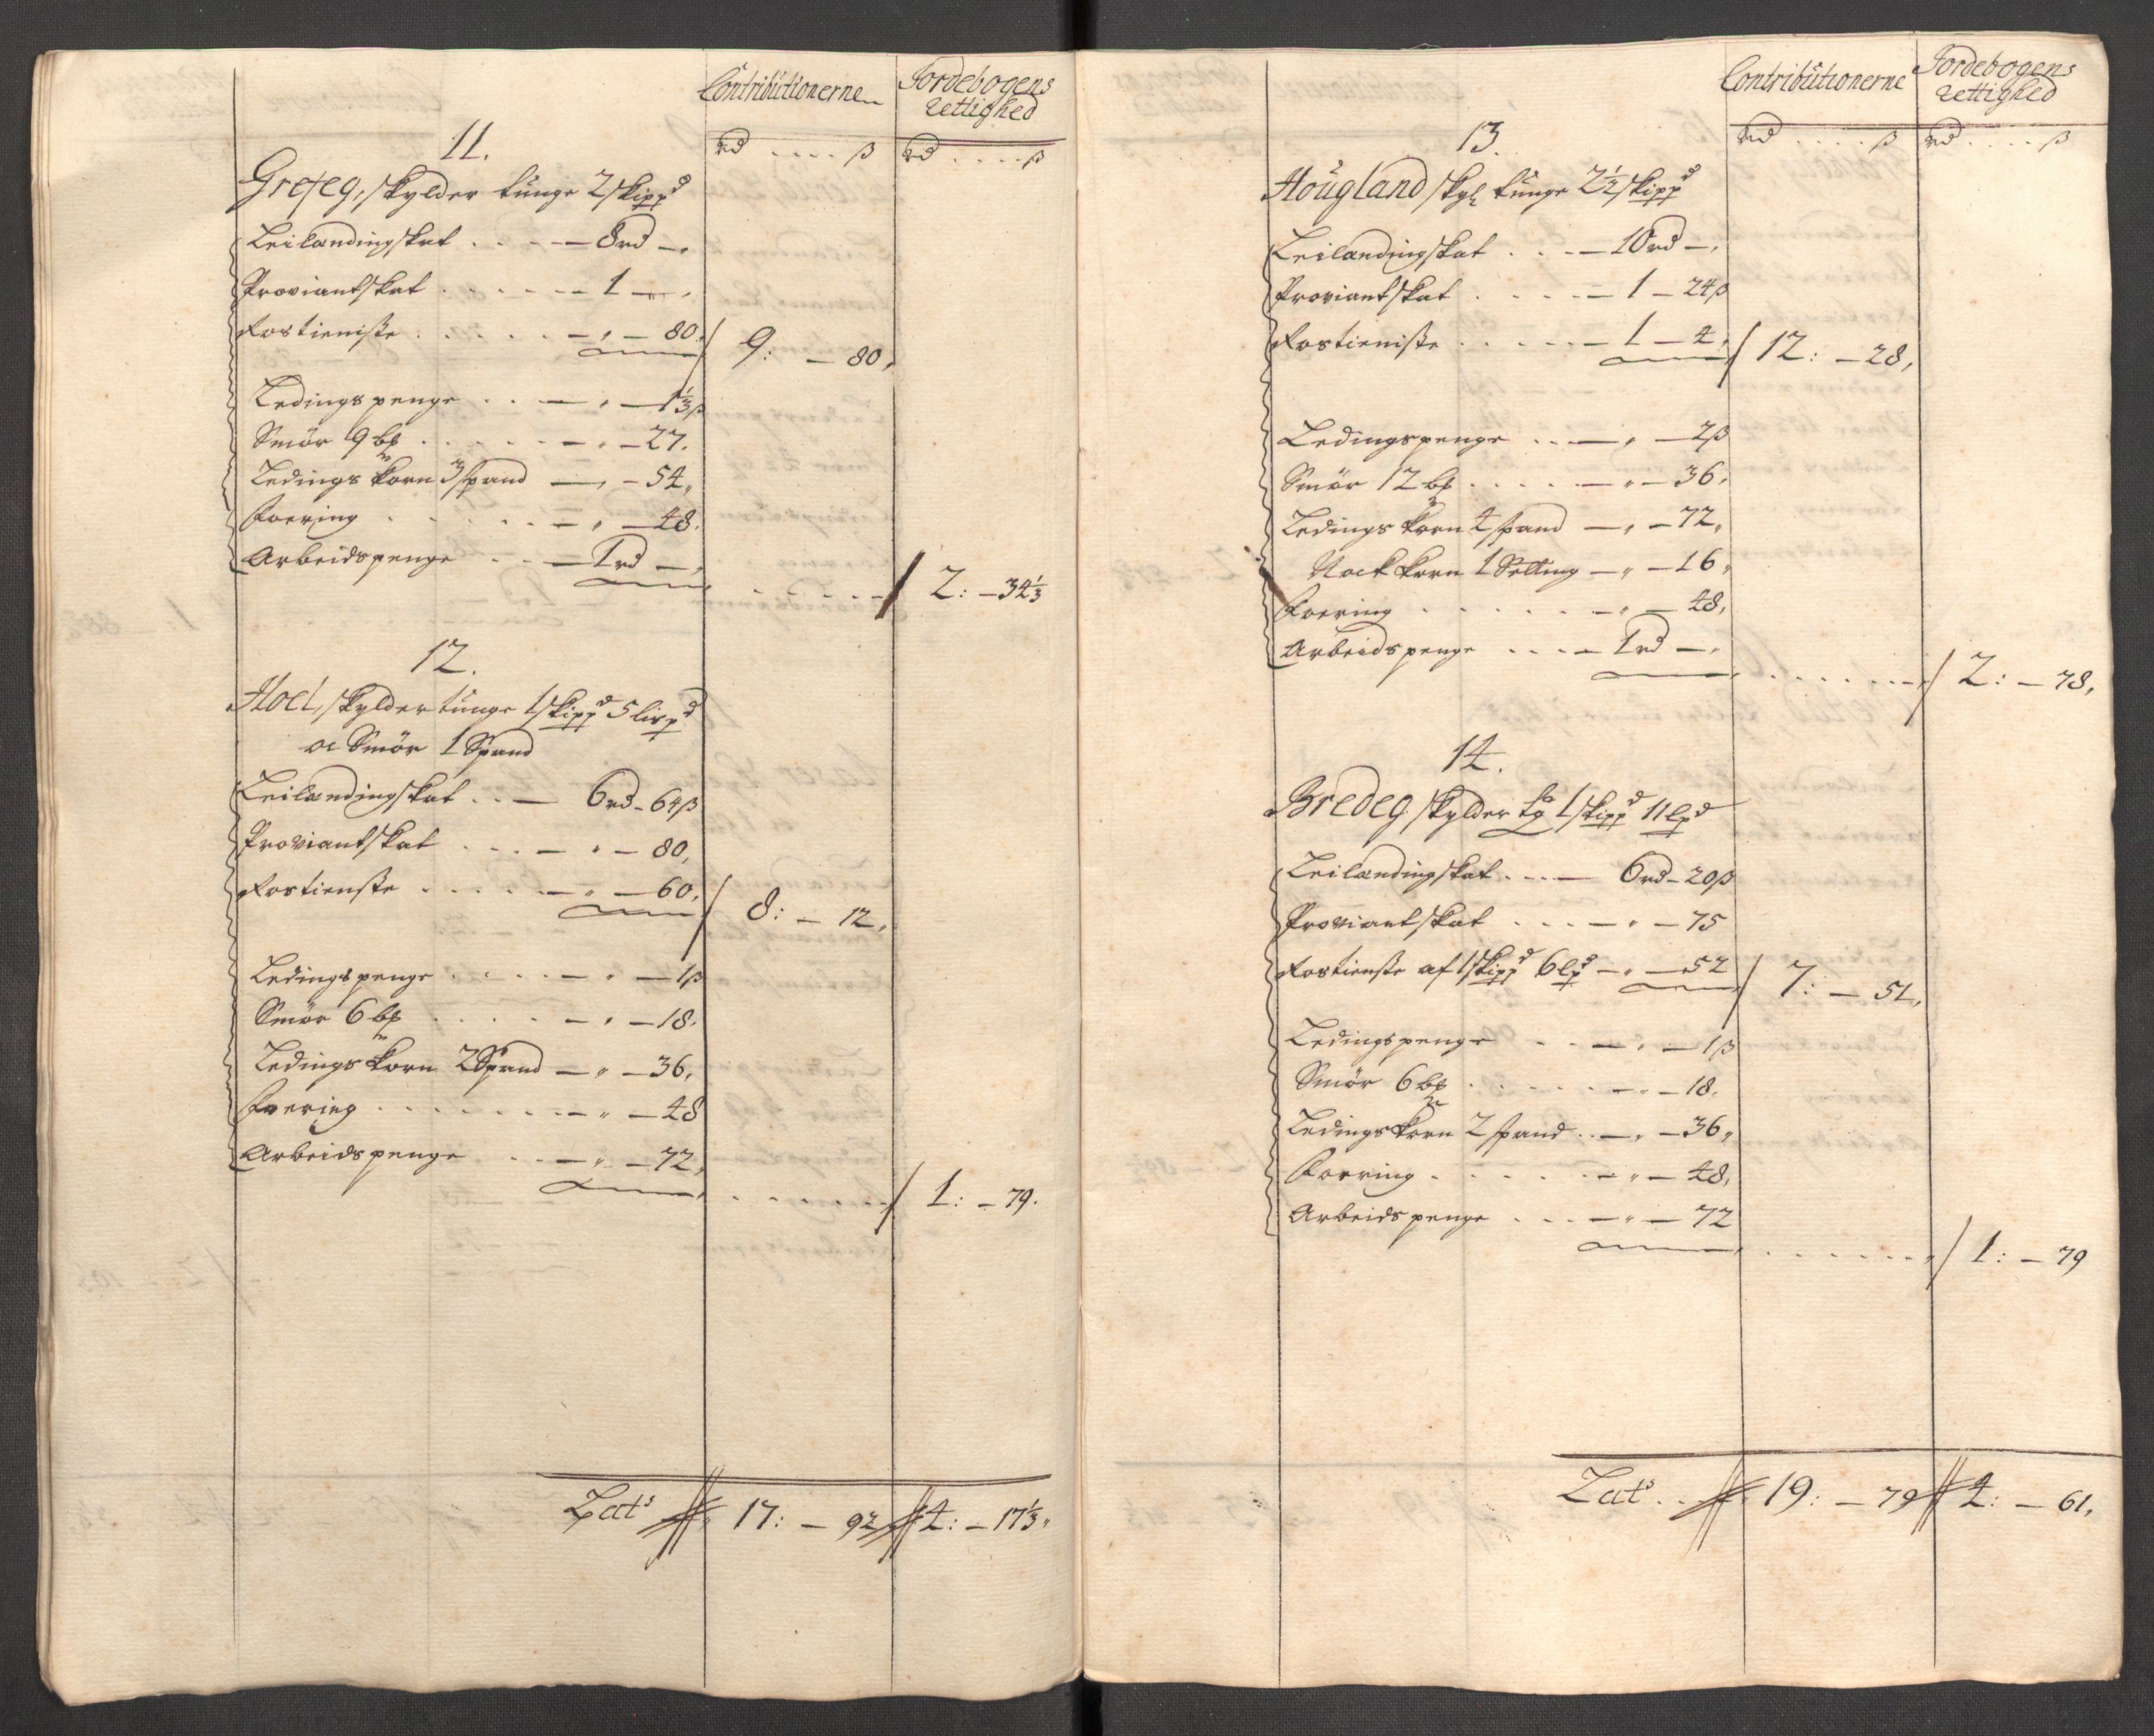 Contributionerne
Jordebogens
rettighed
rd .... ß rd .... ß
11.
Grefeg, skylder tunge 2 skippd
Leilandingskat . . . . 8rd —„
Proviantskat . . . . . . 1 —„
Rostieniste . . . . . — „ — 80. / 9: — 80,
Ledingspenge . . . — „ — 1⅓ß
Smör 9 bp . . . . . — „ — 27.
Ledings korn 3 spand — „ — 54„
Foering . . . . . . — „ — 48.
Arbeidspenge . . . — 1rd —„
. . . . . . / 2: — 34⅓
12.
Hoel, skylder tunge 1 skippd 5 lispd
oc Smör 1 Spand
Leilandingskat . . — 6rd — 64ß
Proviantskat . . . — „ — 80,
Rostienste . . . . — „ — 60, / 8: — 12„
Ledingspenge . . . . — „ — 1ß
Smör 6 bp . . . . — „ — 18.
Ledings korn 2 Spand — „ — 36,
Foering . . . . . . . — „ — 48
Arbeidspenge . . . — „ — 72,
. . . . . . / 1: — 79.
Lats 17: — 92 4: — 17⅓„
Contributionerne
Jordebogens
rettighed
rd .... ß rd .... ß
13.
Hougland skyl tunge 2½ skippd
Leilandingskat . . . — 10rd —„
Proviantskat . . . . — 1 — 24ß
Rostieniste . . . . . — 1 — 4, / 12: — 28,
Ledingspenge . . . — „ — 2ß
Smör 12 bp . . . . . — „ — 36,
Ledings korn 4 spand — „ — 72„
Nock korn 1 Setting — „ — 16„
Foering . . . . . . — „ — 48,
Arbeidspenge . . . . — 1rd —„
. . . . . . / 2: — 78,
14.
Bredeg skylder tg 1 skippd 11 lpd
Leilandingskat . . . — 6rd — 20ß
Proviantskat . . . . — „ — 75
Rostienste af 1 skippd 6 lpd — „ — 52 / 7: — 51,
Ledingspenge . . . — „ — 1ß
Smör 6 bp . . . . . — „ — 18.
Ledings korn 2 spand . . — „ — 36„
Foering . . . . . . — „ — 48,
Arbeidspenge . . . — „ — 72
. . . . . . / 1: — 79
Lats . . 19: — 79 4: — 61,